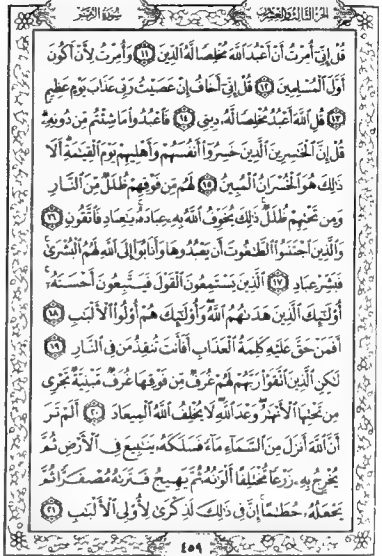 الجزء الثالث والعشرون سورة الزمر
قُلْ إِنِّيٓ أُمِرْتُ أَنْ أَعْبُدَ ٱللَّهَ مُخْلِصًا لَّهُ ٱلدِّينَ ١١ وَأُمِرْتُ لِأَنْ أَكُونَ
أَوَّلَ ٱلْمُسْلِمِينَ ١٢ قُلْ إِنِّيٓ أَخَافُ إِنْ عَصَيْتُ رَبِّي عَذَابَ يَوْمٍ عَظِيمٍ
١٣ قُلِ ٱللَّهَ أَعْبُدُ مُخْلِصًا لَّهُۥ دِينِي ١٤ فَٱعْبُدُوا۟ مَا شِئْتُم مِّن دُونِهِۦ
قُلْ إِنَّ ٱلْخَٰسِرِينَ ٱلَّذِينَ خَسِرُوٓا۟ أَنفُسَهُمْ وَأَهْلِيهِمْ يَوْمَ ٱلْقِيَٰمَةِ أَلَا
ذَٰلِكَ هُوَ ٱلْخُسْرَانُ ٱلْمُبِينُ ١٥ لَهُم مِّن فَوْقِهِمْ ظُلَلٌ مِّنَ ٱلنَّارِ
وَمِن تَحْتِهِمْ ظُلَلٌ ذَٰلِكَ يُخَوِّفُ ٱللَّهُ بِهِۦ عِبَادَهُۥ يَٰعِبَادِ فَٱتَّقُونِ ١٦
وَٱلَّذِينَ ٱجْتَنَبُوا۟ ٱلطَّٰغُوتَ أَن يَعْبُدُوهَا وَأَنَابُوٓا۟ إِلَى ٱللَّهِ لَهُمُ ٱلْبُشْرَىٰ
فَبَشِّرْ عِبَادِ ١٧ ٱلَّذِينَ يَسْتَمِعُونَ ٱلْقَوْلَ فَيَتَّبِعُونَ أَحْسَنَهُۥٓ
أُو۟لَٰٓئِكَ ٱلَّذِينَ هَدَىٰهُمُ ٱللَّهُ وَأُو۟لَٰٓئِكَ هُمْ أُو۟لُوا۟ ٱلْأَلْبَٰبِ ١٨
أَفَمَنْ حَقَّ عَلَيْهِ كَلِمَةُ ٱلْعَذَابِ أَفَأَنتَ تُنقِذُ مَن فِي ٱلنَّارِ ١٩
لَٰكِنِ ٱلَّذِينَ ٱتَّقَوْا۟ رَبَّهُمْ لَهُمْ غُرَفٌ مِّن فَوْقِهَا غُرَفٌ مَّبْنِيَّةٌ تَجْرِي
مِن تَحْتِهَا ٱلْأَنْهَٰرُ وَعْدَ ٱللَّهِ لَا يُخْلِفُ ٱللَّهُ ٱلْمِيعَادَ ٢٠ أَلَمْ تَرَ
أَنَّ ٱللَّهَ أَنزَلَ مِنَ ٱلسَّمَآءِ مَآءً فَسَلَكَهُۥ يَنَٰبِيعَ فِي ٱلْأَرْضِ ثُمَّ
يُخْرِجُ بِهِۦ زَرْعًا مُّخْتَلِفًا أَلْوَٰنُهُۥ ثُمَّ يَهِيجُ فَتَرَىٰهُ مُصْفَرًّا ثُمَّ
يَجْعَلُهُۥ حُطَٰمًا إِنَّ فِي ذَٰلِكَ لَذِكْرَىٰ لِأُو۟لِي ٱلْأَلْبَٰبِ ٢١
٤٥٩